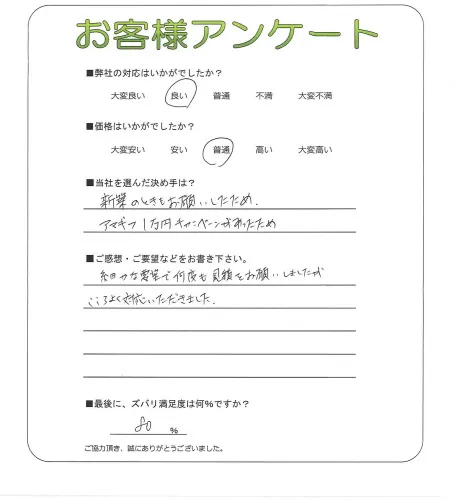 お客様アンケート
■弊社の対応はいかがでしたか？
大変良い 良い 普通 不満 大変不満
■価格はいかがでしたか？
大変安い 安い 普通 高い 大変高い
■当社を選んだ決め手は？
新築のときもお願いしたため.
アマギフ1万円キャンペーンがあったため
■ご感想・ご要望などをお書き下さい。
細かな要望で何度も見積をお願いしましたが
こころよく対応いただきました.
■最後に、ズバリ満足度は何％ですか？
80 ％
ご協力頂き、誠にありがとうございました。